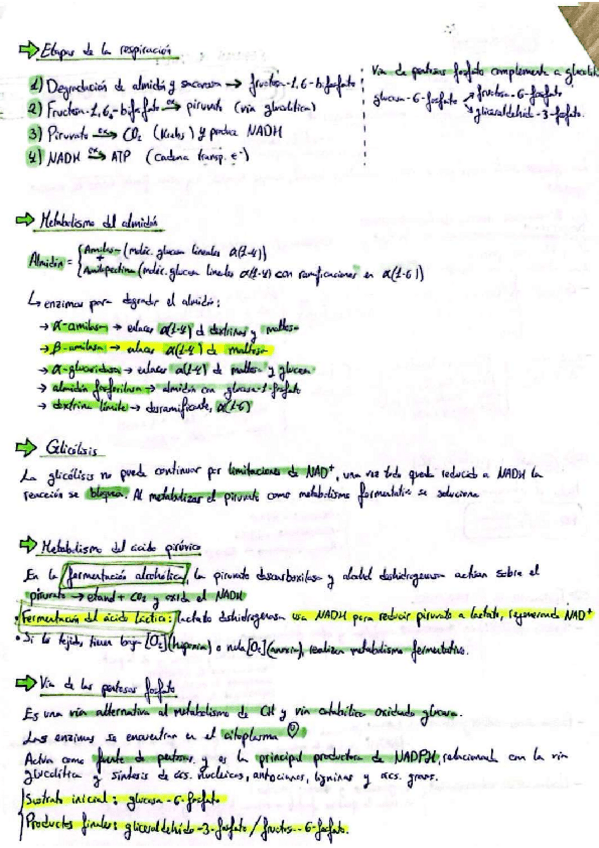 Etapas de la respiración
1) Degradación de almidón y sacarosa → fructosa-1,6-bifosfato
2) Fructosa-1,6-bifosfato → piruvato (vía glicolítica)
3) Piruvato → CO₂ (Krebs) y produce NADH
4) NADH → ATP (cadena transp. e⁻)
Vía de pentosas fosfato complementa a glicólisis
glucosa-6-fosfato → fructosa-6-fosfato
→ gliceraldehído-3-fosfato.
Metabolismo del almidón
Almidón = Amilosa (moléc. glucosa lineales α(1-4))
+
Amilopectina (moléc. glucosa lineales α(1-4) con ramificaciones en α(1-6))
↳ enzimas para degradar el almidón:
→ α-amilasa → enlaces α(1-4) de dextrinas y maltosa
→ β-amilasa → enlaces α(1-4) de maltosa
→ α-glucosidasa → enlaces α(1-4) de maltosa y glucosa
→ almidón fosforilasa → almidón con glucosa-1-fosfato
→ dextrina límite → desramificante, α(1-6)
Glicólisis
La glicólisis no puede continuar por limitaciones de NAD⁺, una vez todo queda reducido a NADH la
reacción se bloquea. Al metabolizar el piruvato como metabolismo fermentativo se soluciona
Metabolismo del ácido pirúvico
En la fermentación alcohólica, la piruvato descarboxilasa y alcohol deshidrogenasa actúan sobre el
piruvato → etanol + CO₂ y oxida el NADH
• Fermentación del ácido láctico: lactato deshidrogenasa usa NADH para reducir piruvato a lactato, regenerando NAD⁺
• Si los tejidos tienen baja [O₂] (hipoxia) o nula [O₂] (anoxia), realizan metabolismo fermentativo.
Vía de las pentosas fosfato
Es una vía alternativa al metabolismo de CH y vía catabólica oxidado glucosa.
Las enzimas se encuentran en el citoplasma
Actúa como fuente de pentosas, y es la principal productora de NADPH, relacionada con la vía
glicolítica y síntesis de ács. nucleicos, antocianos, ligninas y ács. grasos.
Sustrato inicial: glucosa-6-fosfato
Productos finales: gliceraldehído-3-fosfato / fructosa-6-fosfato.